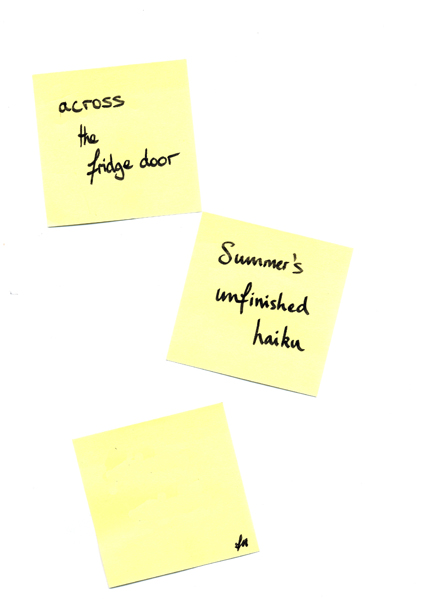 across
the
fridge door
Summer's
unfinished
haiku